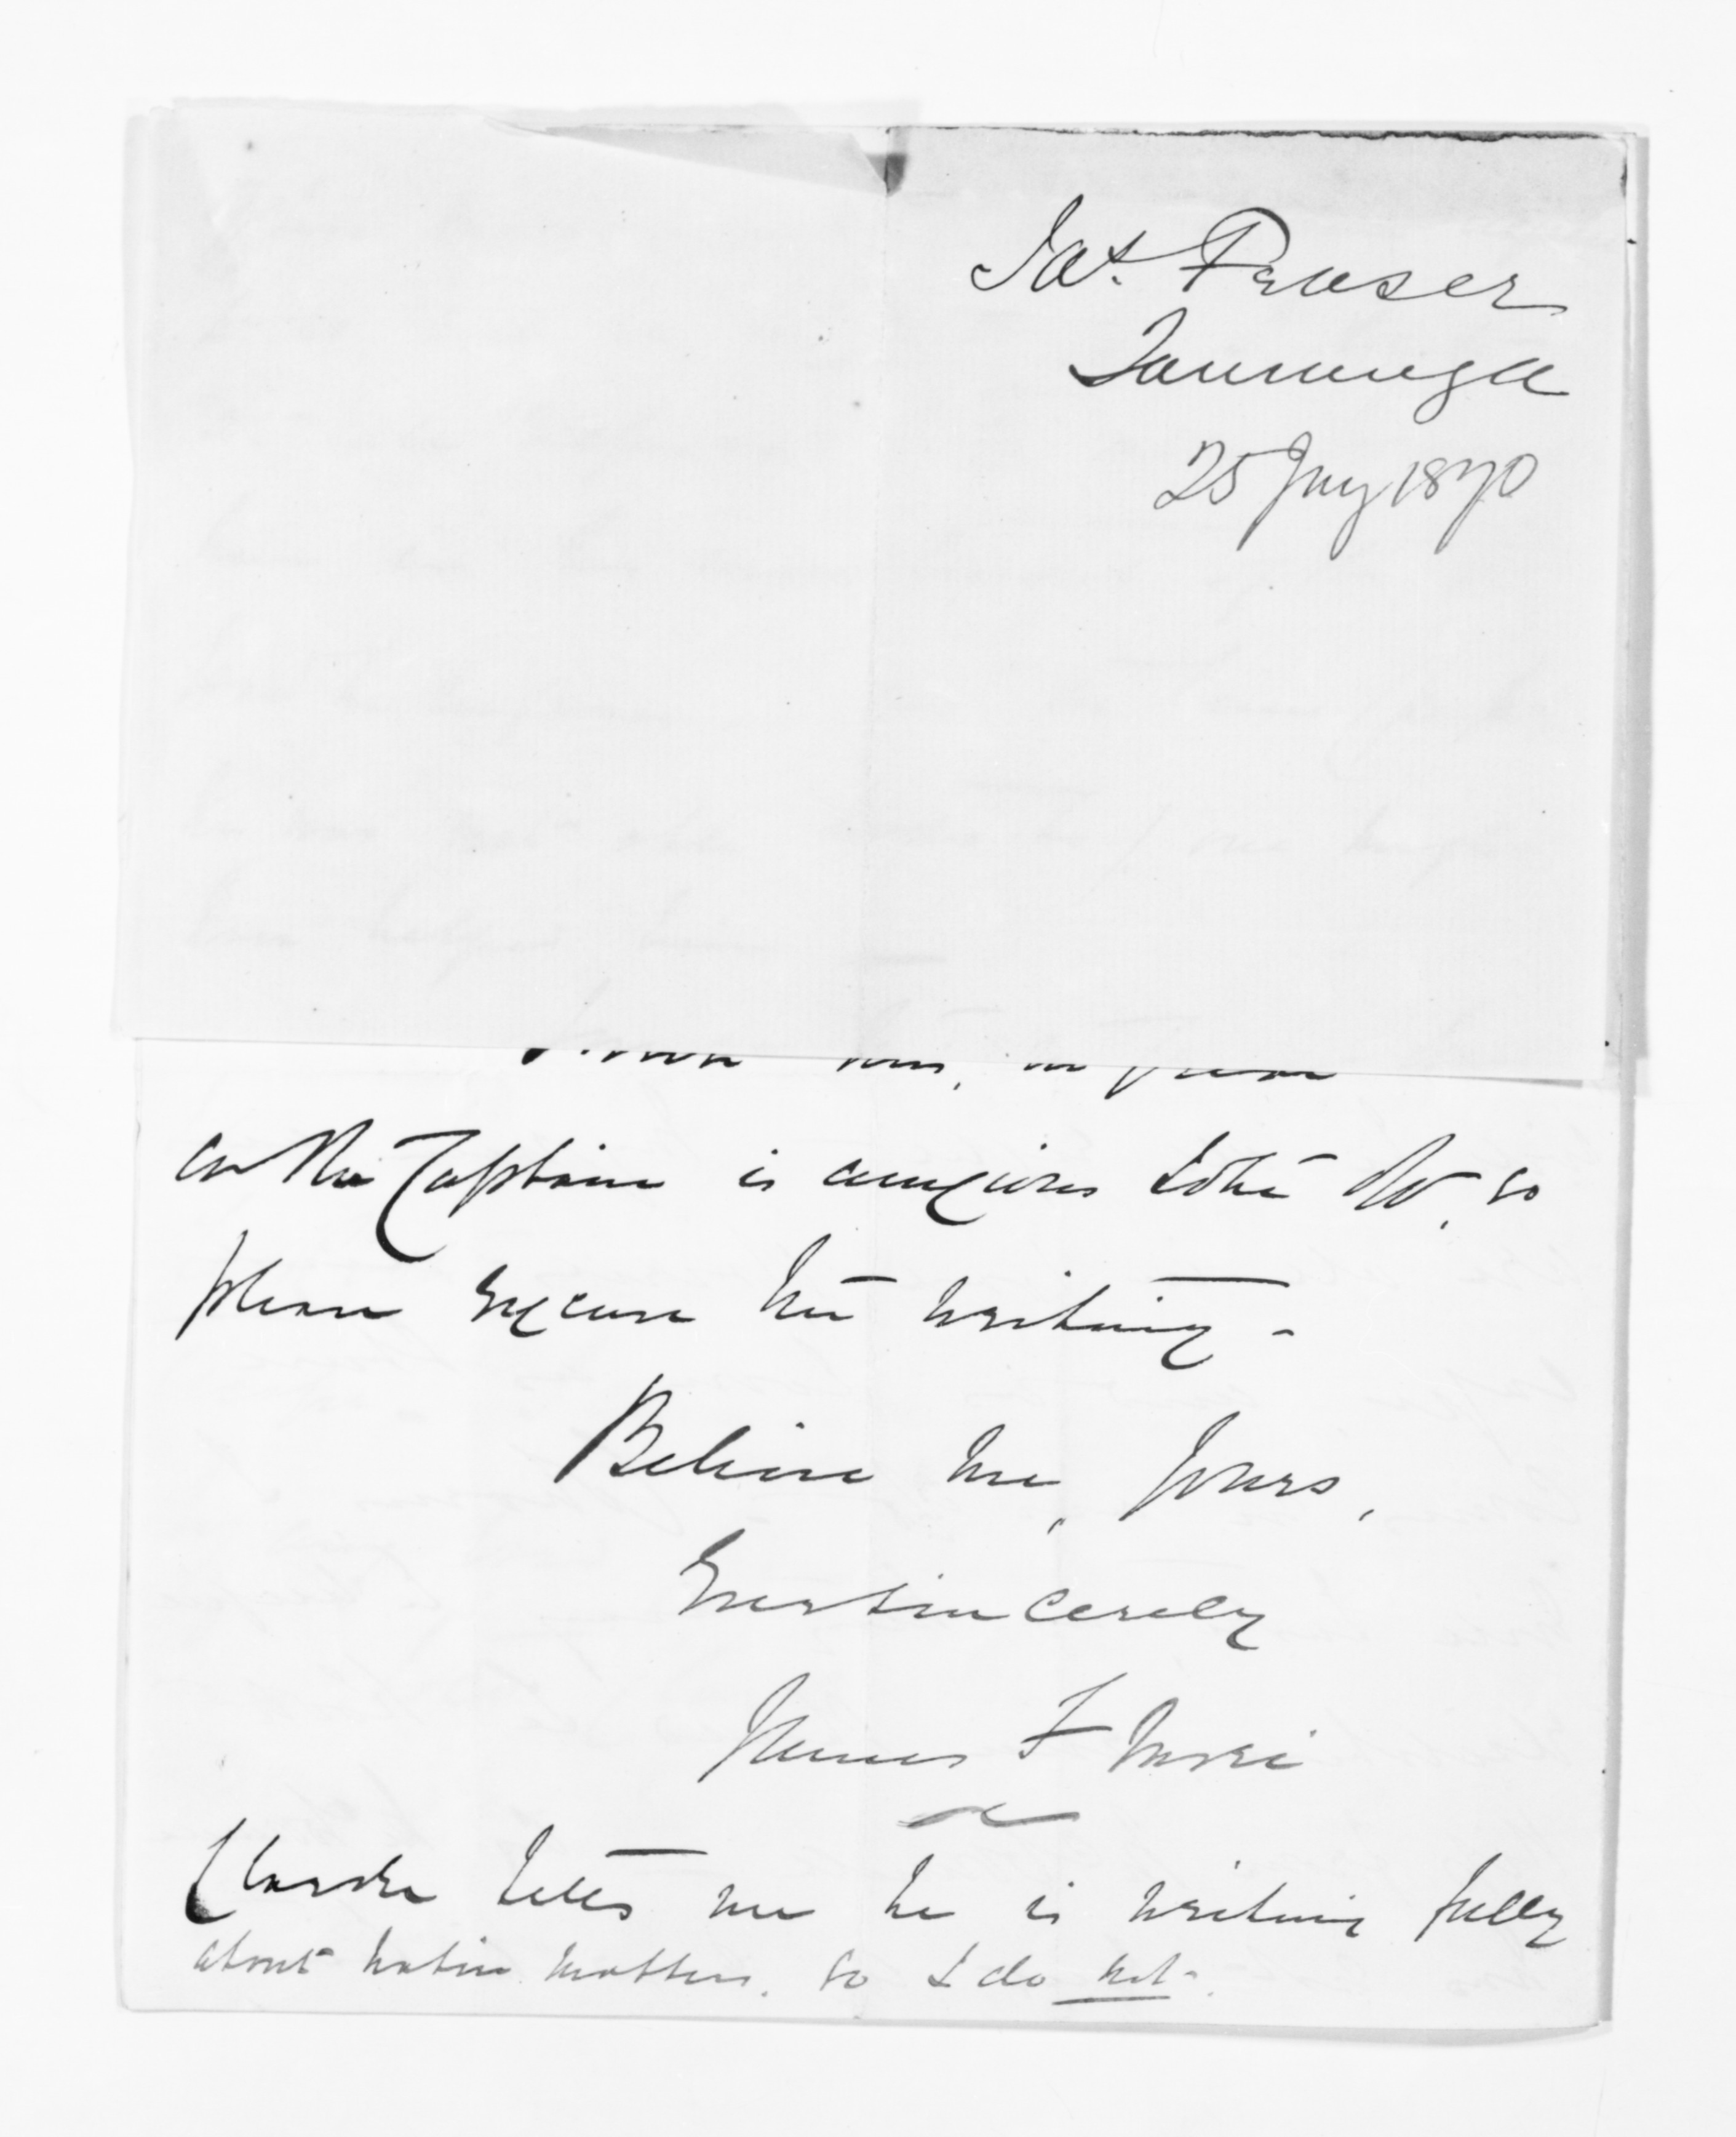 Jas. Fraser
Tauranga
25 Jny 1870
as the Captain is anxious to be off, so
please excuse this writing -
Believe me, Yours,
Ever sincerely
James Fraser
Clarke tells me he is writing fully
about native matters, so I do not.